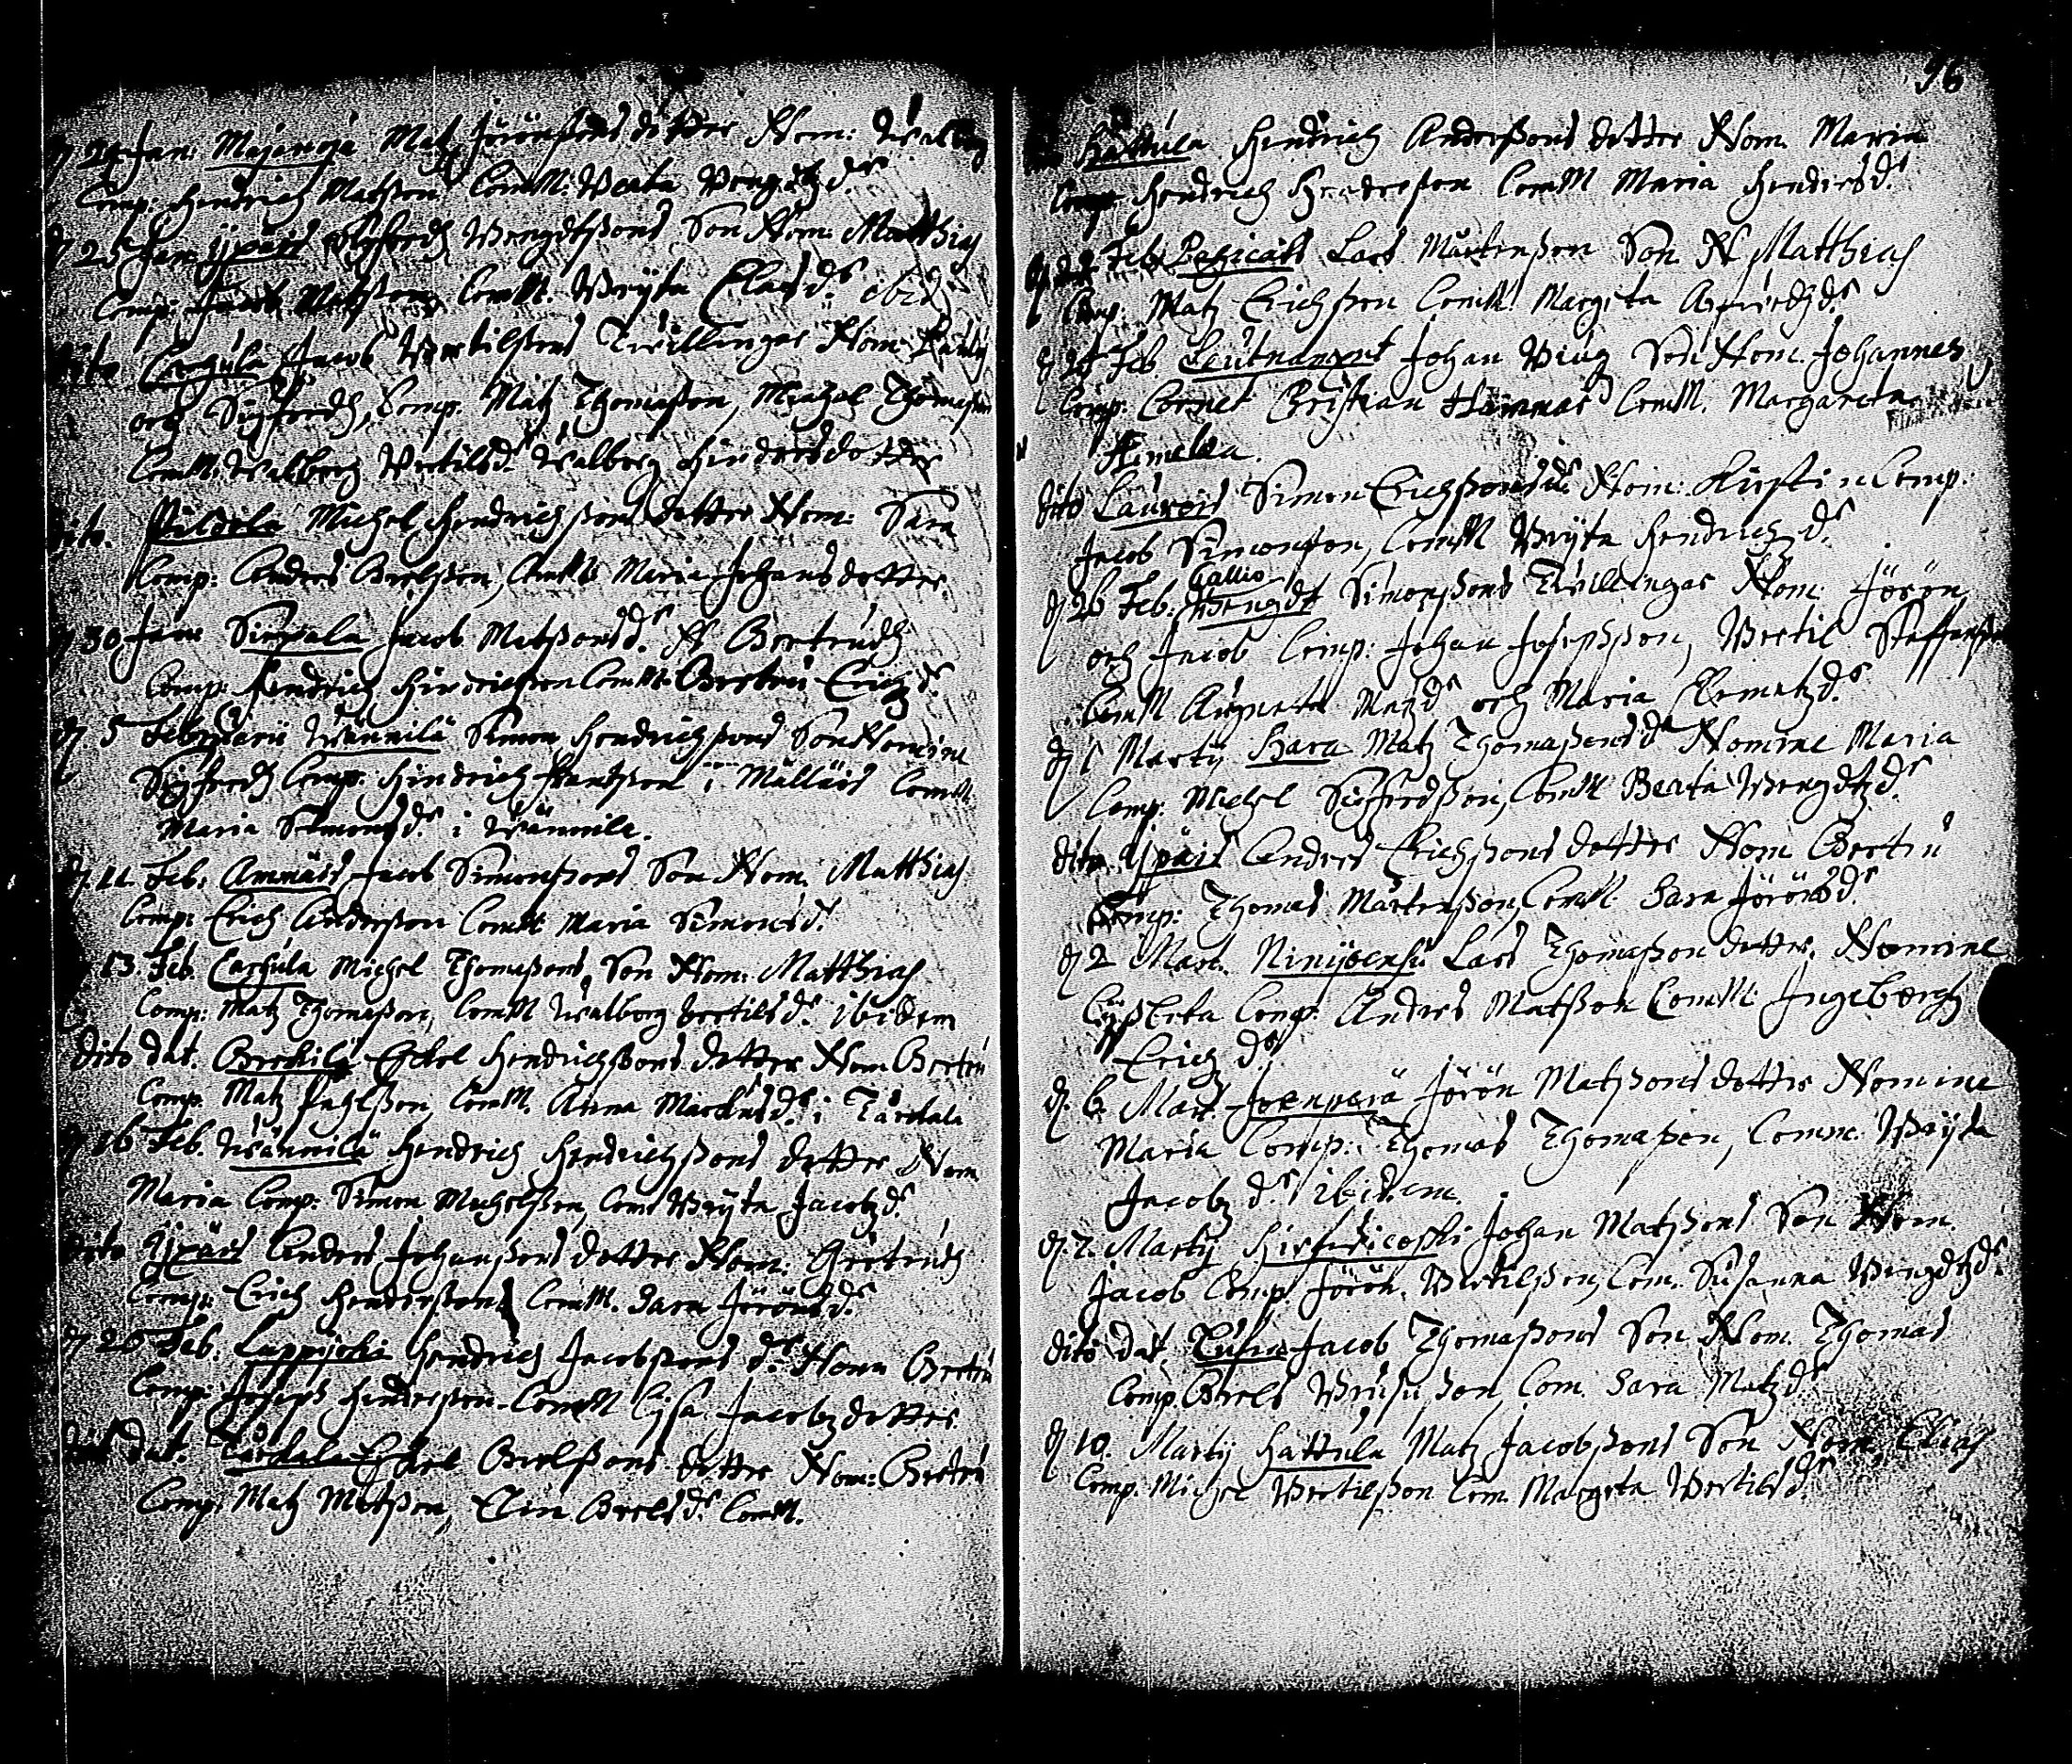 d 24 Jan: Majanoja Matz Jörönßons dotter Nom: Walborg
Comp: Hendrich Matßon ComM: Berta Bengdtzd.r
d 25 Jan Ypäis Sigfredh Bengdtßons Son Nom: Matthias
Comp: Matßon ComM. Bryta Clasd.r ibid.
dito Cargula Jacob Bertilßons Twillingar Nom:
och Sigfredh, Comp. Matz Thomaßon, Michel Thomaßon
ComM: Walborg Bertilsd.r Walborg Hindersdotter
dito. Michel Hendrichßons dotter Nom: Sara
Comp: Anders ComM: Maria Johansdotter.
d 30 Jan: Sirpala Jacob Matßons d.r N Gertrudh
Comp: Hendrich Hindrichßon ComM: Gertru Erichzd.r
d. 5 Februarii Wännilä Simon Hendrichßons Son Nomine
Sigfredh Comp: Hindrich i ComM.
Maria Simonsd.r i Wännile.
d. 11. Feb: Ammäis Jacob Simonßons Son Nom. Matthias
Comp: Erich Anderßon ComM: Maria Simonsd.r
d 13. Feb. Cargula Michel Thomaßons Son Nom: Matthias
Comp: Matz Thomaßon, ComM Walborg bertilsd.r ibidem
dito dat. Eskel Hendrichßons dotter Nom Gertru
Comp. Matz Pahlßon, ComM. Anna Martinsd.r i Tårttala
d 16 Feb. Wännilä Hendrich Hendrichßons dotter Nom
Maria Comp: Simon Michelßon, Com: Bryta Jacobzd.r
dito Ypäis Anders Johanßons dotter Nom: Gertrudh
Comp: Erich Henderßons ComM. Sara Jörönsd.r
d 20 Feb: Lappijocki Hendrich Jacobßons d.r Nom Gertru
Comp: Joseph Henderßon ComM Lisa Jacobzdotter
dito dat. Eskel Grelßons dotter Nom: Gertru
Comp: Matz Matßon, Elin Grelsd.r ComM.
96
Hattula Hendrich Anderßons dotter Nom. Maria
Comp Hendrich Henderßon ComM Maria Hendersd.r
d Feb: Lars Mårtenßon Son N Matthias
Comp: Matz Erichßon ComM: Margeta
d 24 Feb Leutnament Johan Son Nom. Johannes
Comp: Cornet Cristian ComM. Margareta
dito Laurois Simon Erichßons d.r Nom: Kirstin Comp:
Jacob Simonßon, ComM Bryta Hendrichzd.r
Gallio
d 26 Feb: Bengdt Simonßons Twillingar Nom: Jörön
och Jacob Comp: Johan Josepßon, Bertil Staffanßon
ComM Matzd.r och Maria Clemetzd.r
d 1 Martij Hara Matz Thomaßons d.r Nomine Maria
Comp: Michel Sigfredßon, ComM Beata Bengdtzd.r
dito. Ypäis Anders Erichßons dotter Nom Gertru
Comp: Thomas Mårtenßon, ComM: Sara Jörönsd.r
d 2 Mart. Lars Thomaßon dotter. Nomine
Comp: Anders Matßon ComM: Ingeborgh
Erichzd.r
d. 6. Mart. Joenperä Jörön Matßons dotter Nomine
Maria Comp: Thomas Thomaßon, Comm: Bryta
Jacobzd.r ibidem
d. 7. Martij Johan Matßons Son Nom.
Jacob Comp: Jörön. Bertilßon, Com. Susanna Bengdtzd.r
dito dat. Jacob Thomaßons Son Nom. Thomas
Comp. Grels Com. Sara Matzd.r
d 10. Martij Hattula Matz Jacobßons Son Nom: Elias
Comp. Michel Bertilßon Com. Margeta Bertilsd.r